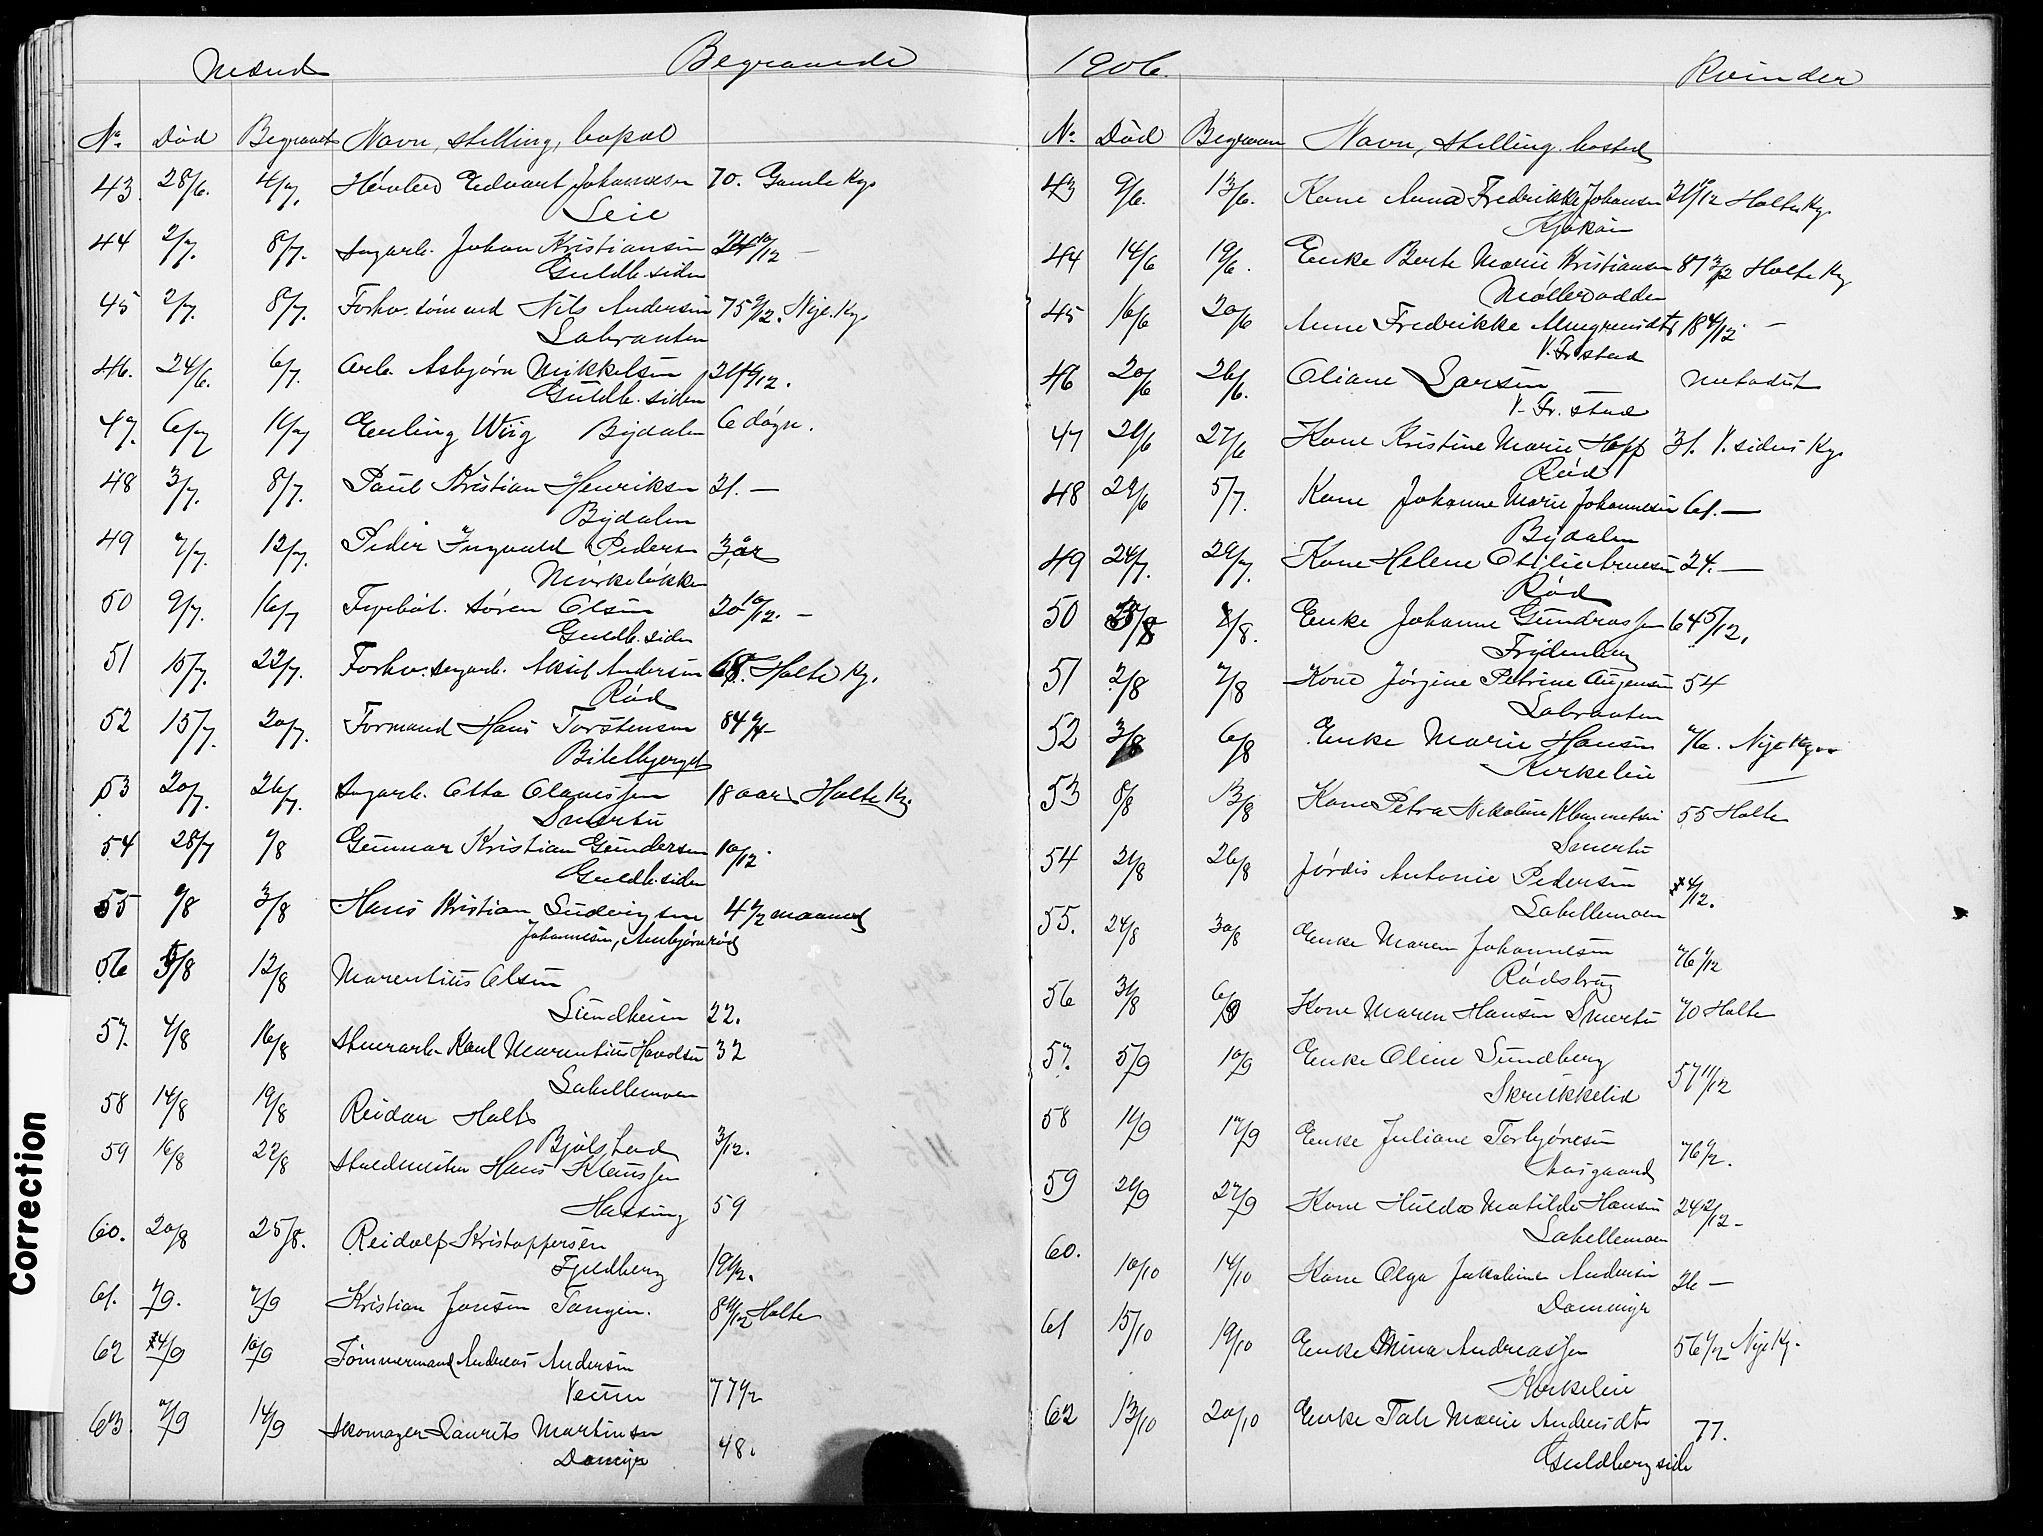 Mænd Begravede
No. Død Begravet Navn, stilling, bopæl
43 28/6. 4/7. Edvart Johannesen 70. Gamle Kg.
Leie
44 2/7. 8/7. Sagarb. Johan Kristiansen 24 10/12 —
Guldb. siden
45 2/7. 8/7. Forhv. sømand Nils Andersen 75 9/12. Nye Kg.
Labraaten
46. 24/6. 6/7. Arb. Asbjørn Mikkelsen
Guldb. siden
47. 6/7 10/7 Erling Wiig Bydalen 6 døgn.
48 3/7. 8/7. Paul Kristian Henriksen 31. —
Bydalen
49 7/7. 12/7. Peder Ingvald Pedersen 3 år
Mørkeløkken
50 9/7. 16/7 Fyrbøt. Søren Olsen 20 10/12. —
Guldb. siden
51 15/7. 22/7. Forhv. sagarb. Aksel Andersen 68. Holte Kg.
Rød
52 15/7. 20/7. Formand Hans Torstensen 84
53 20/7. 26/7. Sagarb. Otto Olaussen 18 aar Holte Kg.
Smertu
54 28/7 1/8 Gunnar Kristian Gundersen 10/12.
Guldb. siden
55 1/8 3/8 Hans Kristian Ludvigsen 4 1/2 maaned
Johannesen, Ambjørnrød
56 5/8 12/8 Marentius Olsen
Sundheim 22.
57. 7/8 16/8 Stuerarb. Karl Marentius 32
Labellemoen
58 14/8 19/8 Reidar Holt
Bjølstad 3/12.
59 16/8 22/8 Hans Klaussen
Hassing 59
60. 20/8 25/8. Reidolf Kristoffersen
Fjeldberg 19 1/2.
61. 1/9. 7/9 Kristian Jonsen Tangen. 8 11/12 Holte
62 4/9 10/9 Tømmermand Andreas Andersen
Veum 77 1/2
63. 7/9 14/9 Skomager Laurits Martinsen
Dammyr 48.
1906. Kvinder
No. Død Begraven Navn, stilling, bosted
43 9/6. 13/6. Kone Anna Fredrikke Johansen Holte Kg.
Kjøkøi
44 14/6 19/6. Enke Berte Marie Kristiansen 81 Holte Kg
Møllerodden
45 16/6 20/6 Anne Fredrikke 18 4/12. —
V. Fr.stad
46 20/6 26/6. Oliane Larsen Metodist
V. Fr. stad
47 21/6 27/6 Kone Kristine Marie Hopp 31. V. sidens Kg.
Rød
48 29/6 5/7. Kone Johanne Marie Johannesen 61. —
Bydalen
49 24/7. 29/7. Kone Helene Otilie Arnesen 24. —
Rød
50 1/8. Enke Johanne Gundrossen 64 5/12.
Frydenberg
51 2/8 7/8 Kone Jørgine Petrine Augensen 54
Labraaten
52 3/8 6/8 Enke Marie Hansen 76. Nye Kg.
Kirkelien
53 8/8 13/8 Kone Petra Nikoline Klemmetsen 55 Holte
Smertu
54 21/8 26/8 Jørdis Antonie Pedersen 4/12.
Labellemoen
55. 24/8 30/8 Enke Maren Johannesen
Rødsbrug 76 1/12
56 31/8 6/9 Kone Maren Hansen Smertu 70 Holte
57. 5/9 10/9 Enke Oline Sundberg
Skrukkelid 57 11/12
58 11/9 17/9 Enke Juliane Torbjørnsen
Aasgaard 76 1/2.
59 21/9 27/9 Kone Hulda Matilde Hansen 24 2/12 —
Labellemoen
60. 10/10 14/10 Kone Olga Jakobine Andersen 26 —
Dammyr
61 15/10 19/10 Enke Mina Andreassen 56 1/2 Nye Kg.
Kirkelien
62 13/10 20/10 Enke Marie
Guldbergside 77.
Correction